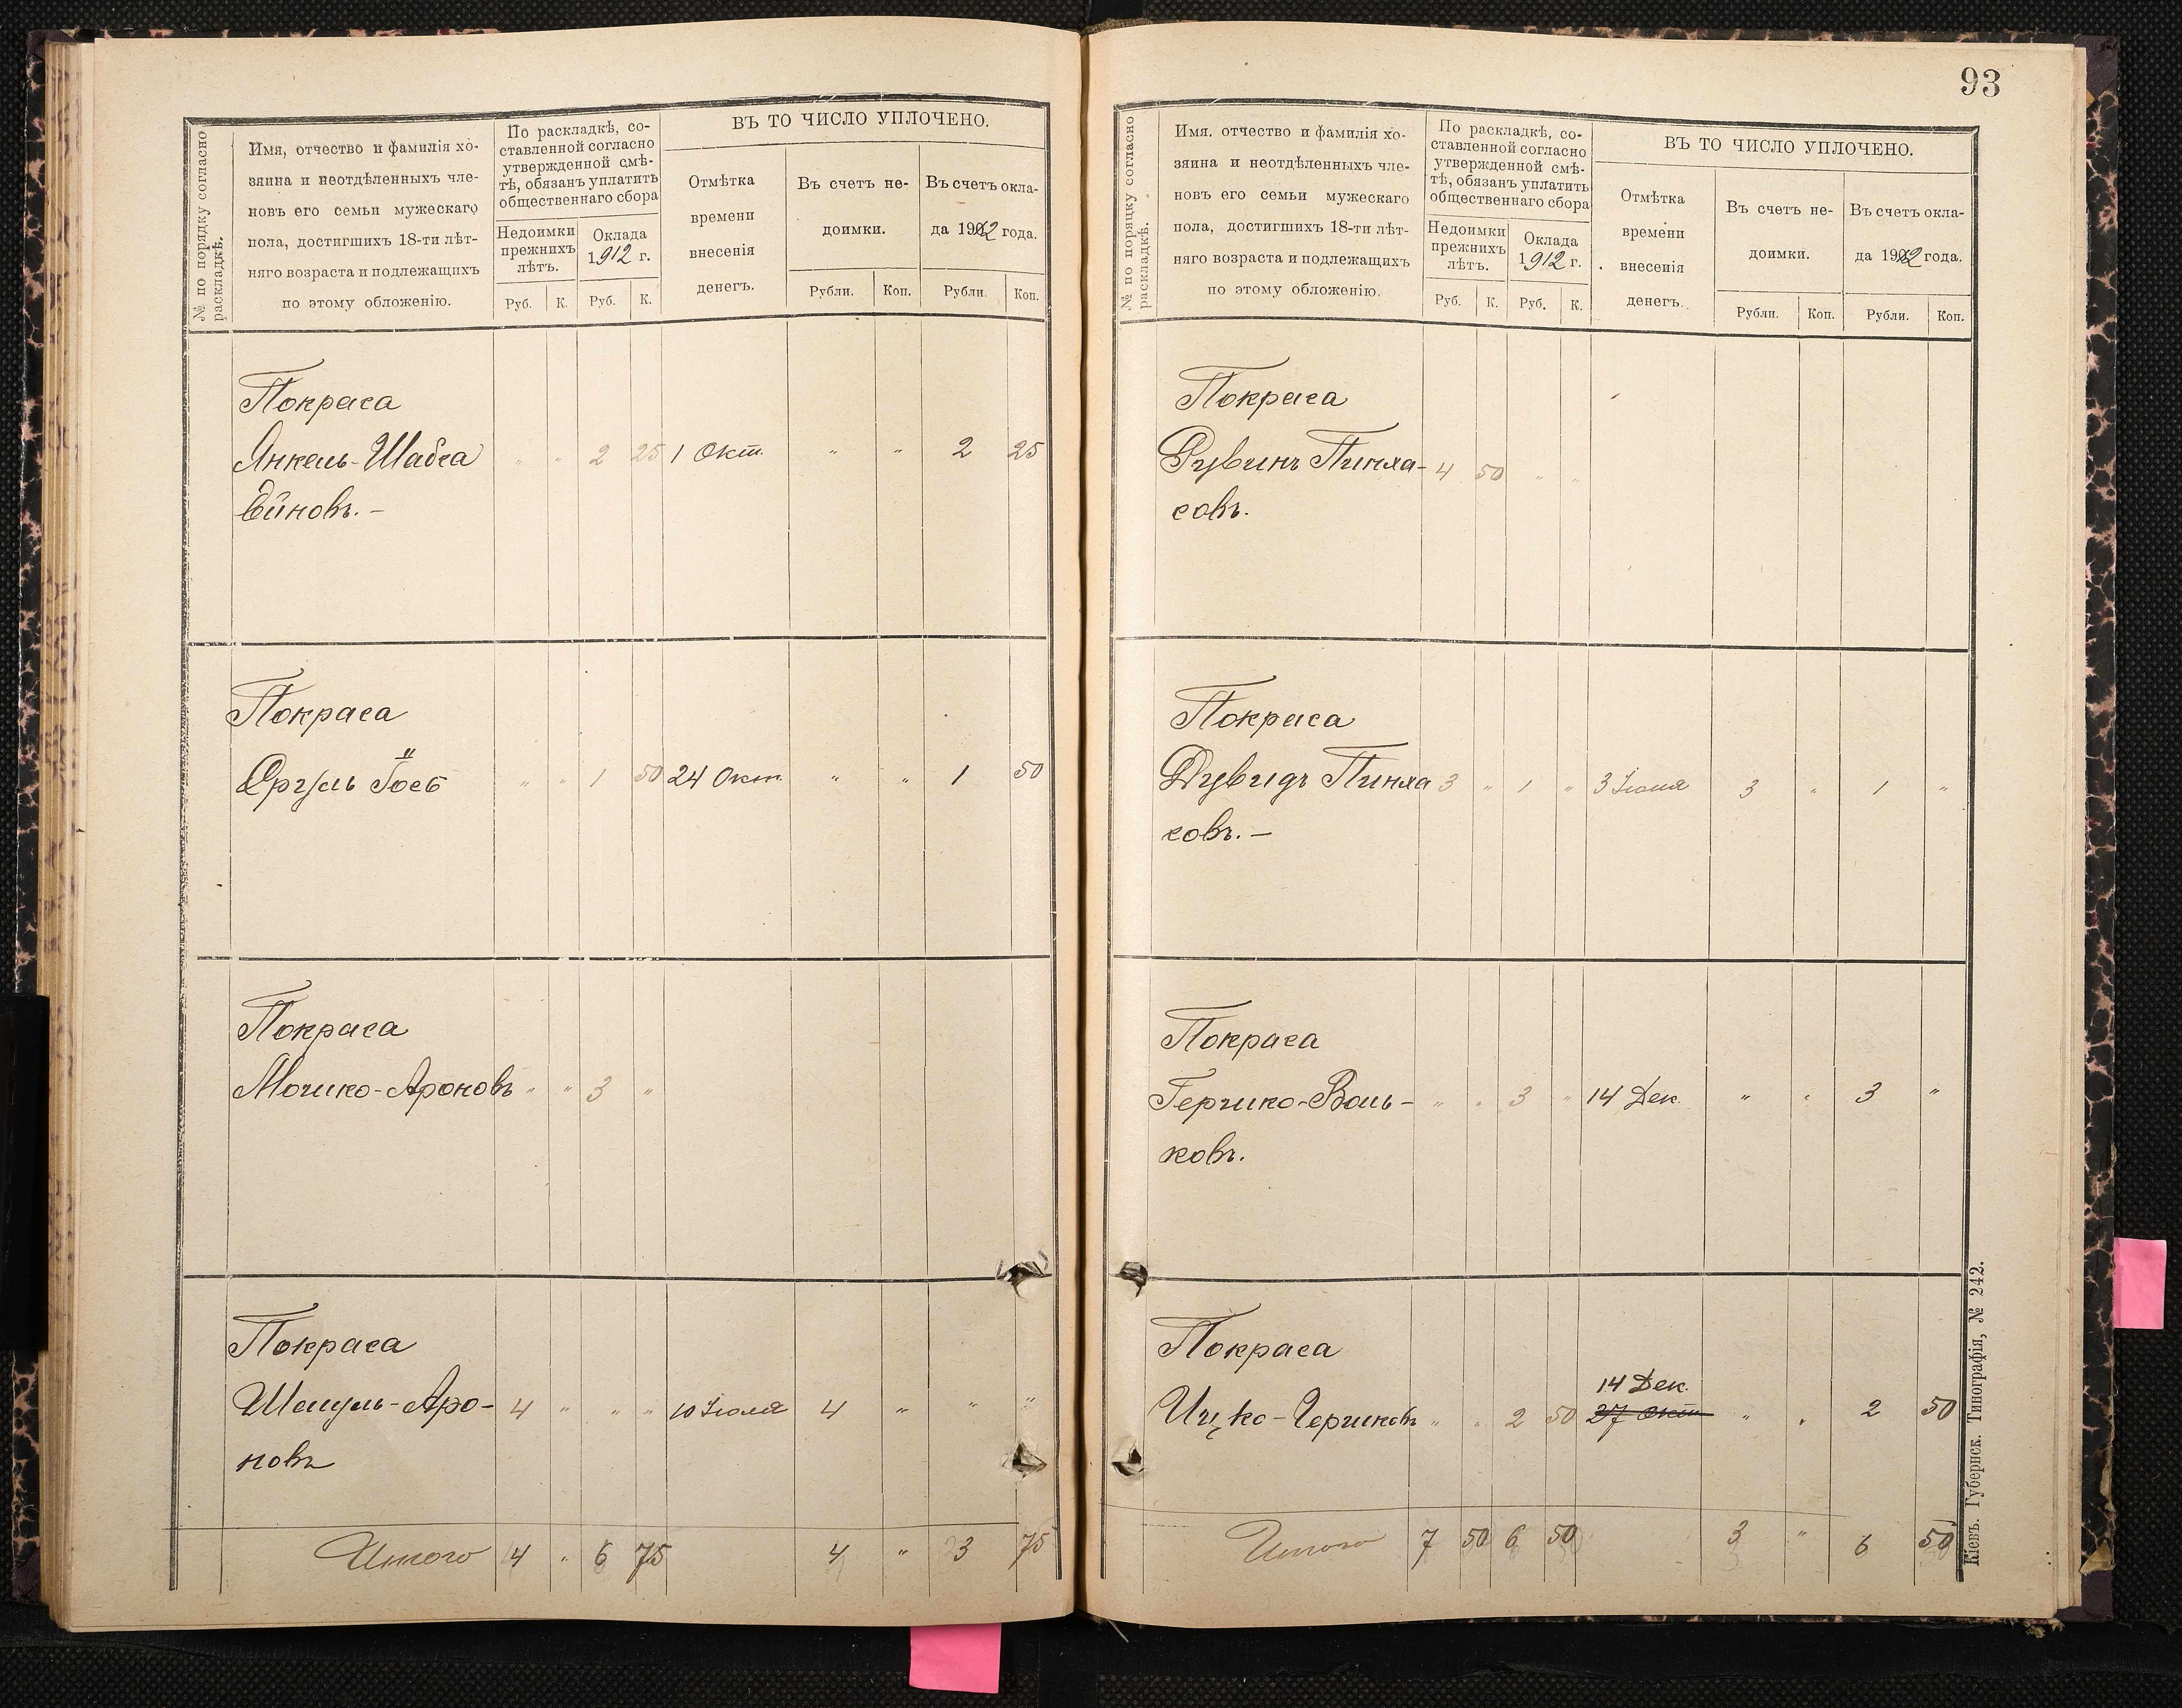 № по порядку согласно
раскладкѣ.
Имя, отчество и фамилія хо-
зяина и неотдѣленныхъ чле-
новъ его семьи мужескаго
пола, достигшихъ 18-ти лѣт-
няго возраста и подлежащихъ
по этому обложенію.
По раскладкѣ, со-
ставленной согласно
утвержденной смѣ-
тѣ, обязанъ уплатить
общественнаго сбора
Недоимки
прежнихъ
лѣтъ.
Оклада
1912 г.
Руб. К. Руб. К.
ВЪ ТО ЧИСЛО УПЛОЧЕНО.
Отмѣтка
времени
внесенія
денегъ.
Въ счетъ не-
доимки.
Рубли. Коп.
Въ счетъ окла-
да 1912 года.
Рубли. Коп.
Покраса
Янкель-Шабса " " 2 25 1 Окт. " " 2 25
Ейновъ. -
Покраса
" " 1 50 24 Окт. " " 1 50
Покраса
Мошко-Ароновъ " " 3 "
Покраса
Шмуль-Аро- 4 " " " 10 Іюля 4 " " "
новъ
Итого 4 " 6 75 4 " 3 75
93
№ по порядку согласно
раскладкѣ.
Имя. отчество и фамилія хо-
зяина и неотдѣленныхъ чле-
новъ его семьи мужескаго
пола, достигшихъ 18-ти лѣт-
няго возраста и подлежащихъ
по этому обложенію.
По раскладкѣ, со-
ставленной согласно
утвержденной смѣ-
тѣ, обязанъ уплатить
общественнаго сбора
Недоимки
прежнихъ
лѣтъ.
Оклада
1912 г.
Руб. К. Руб. К.
ВЪ ТО ЧИСЛО УПЛОЧЕНО.
Отмѣтка
времени
внесенія
денегъ.
Въ счетъ не-
доимки.
Рубли. Коп.
Въ счетъ окла-
да 1912 года.
Рубли. Коп.
Покраса
Рувинъ Пинха- 4 50 " "
совъ.
Покраса
Дувидъ Пинха 3 " 1 " 3 Іюля 3 " 1 "
совъ. -
Покраса
Гершко-Воль- " " 3 " 14 Дек. " " 3 "
ковъ.
Покраса
14 Дек.
Ицко-Гершковъ " " 2 50 27 Окт. " " 2 50
Итого 7 50 6 50 3 " 6 50
Кіевъ. Губернск. Типографія, № 242.